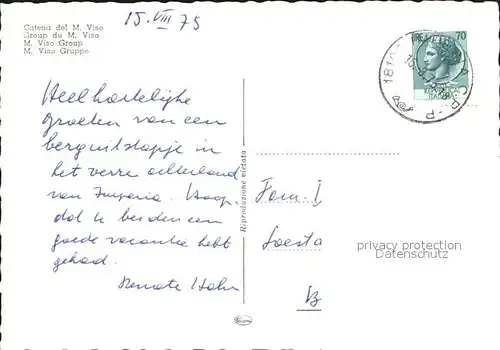 15. VIII 75
Catena del M. Viso
Group du M. Viso
M. Viso Group
M. Viso Gruppe
70
Heel hartelijke
groeten van een
berguitstapje in
het verre achterland
van Imperia. Hoop
dat u beiden een
goede vacantie hebt
gehad.
Renate Hahn
Riproduzione vietata
Fam.
Soesta
privacy protection
Datenschutz